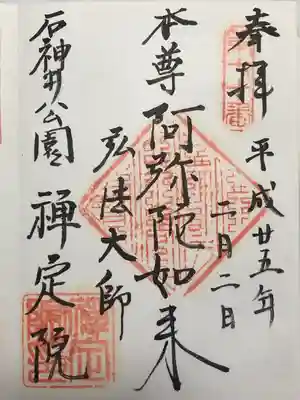 奉拝
平成廿五年
二月二日
本尊阿弥陀如来
弘法大師
石神井公園
禅定院